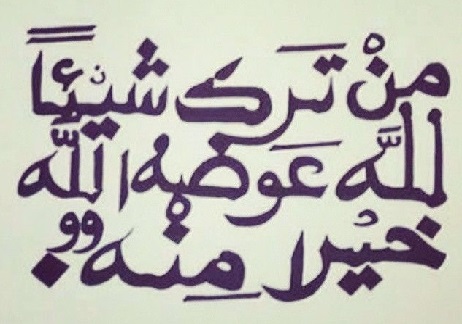 مِنْ تَرَكَ شَيْئاً
للَّه عَوضه اللَّه
خيرا مِنه